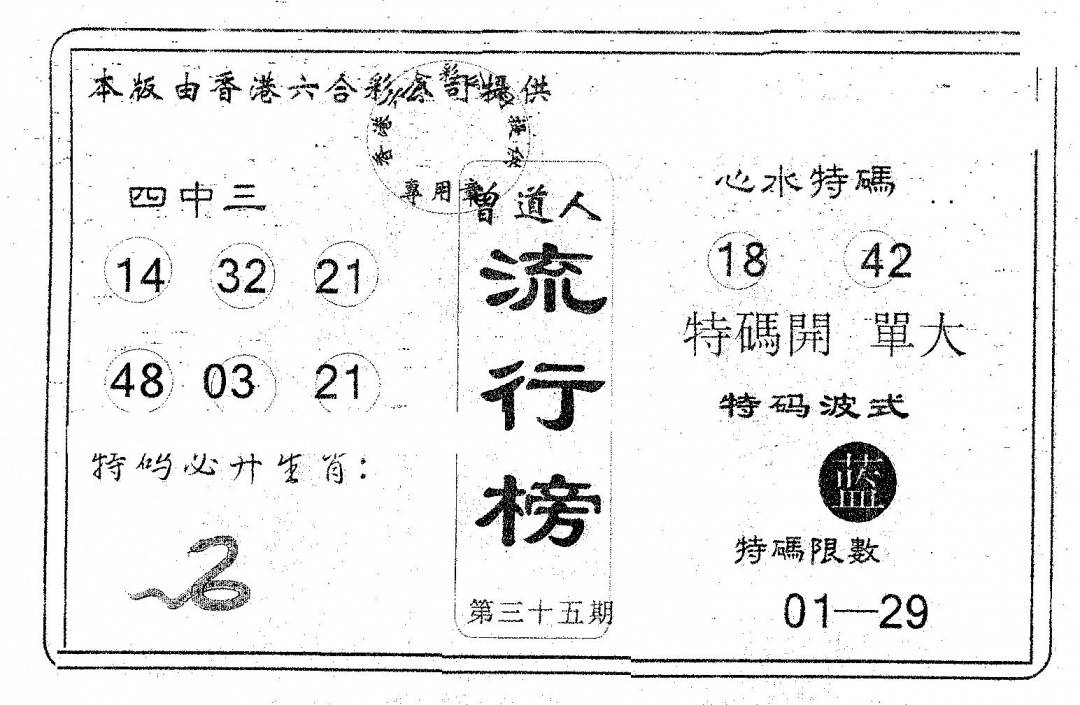 本版由香港六合彩提供
香港
專用章
四中三
14 32 21
48 03 21
特码必开生肖:
曾道人
流
行
榜
第三十五期
心水特碼
18 42
特碼開 單大
特码波式
蓝
特碼限數
01—29